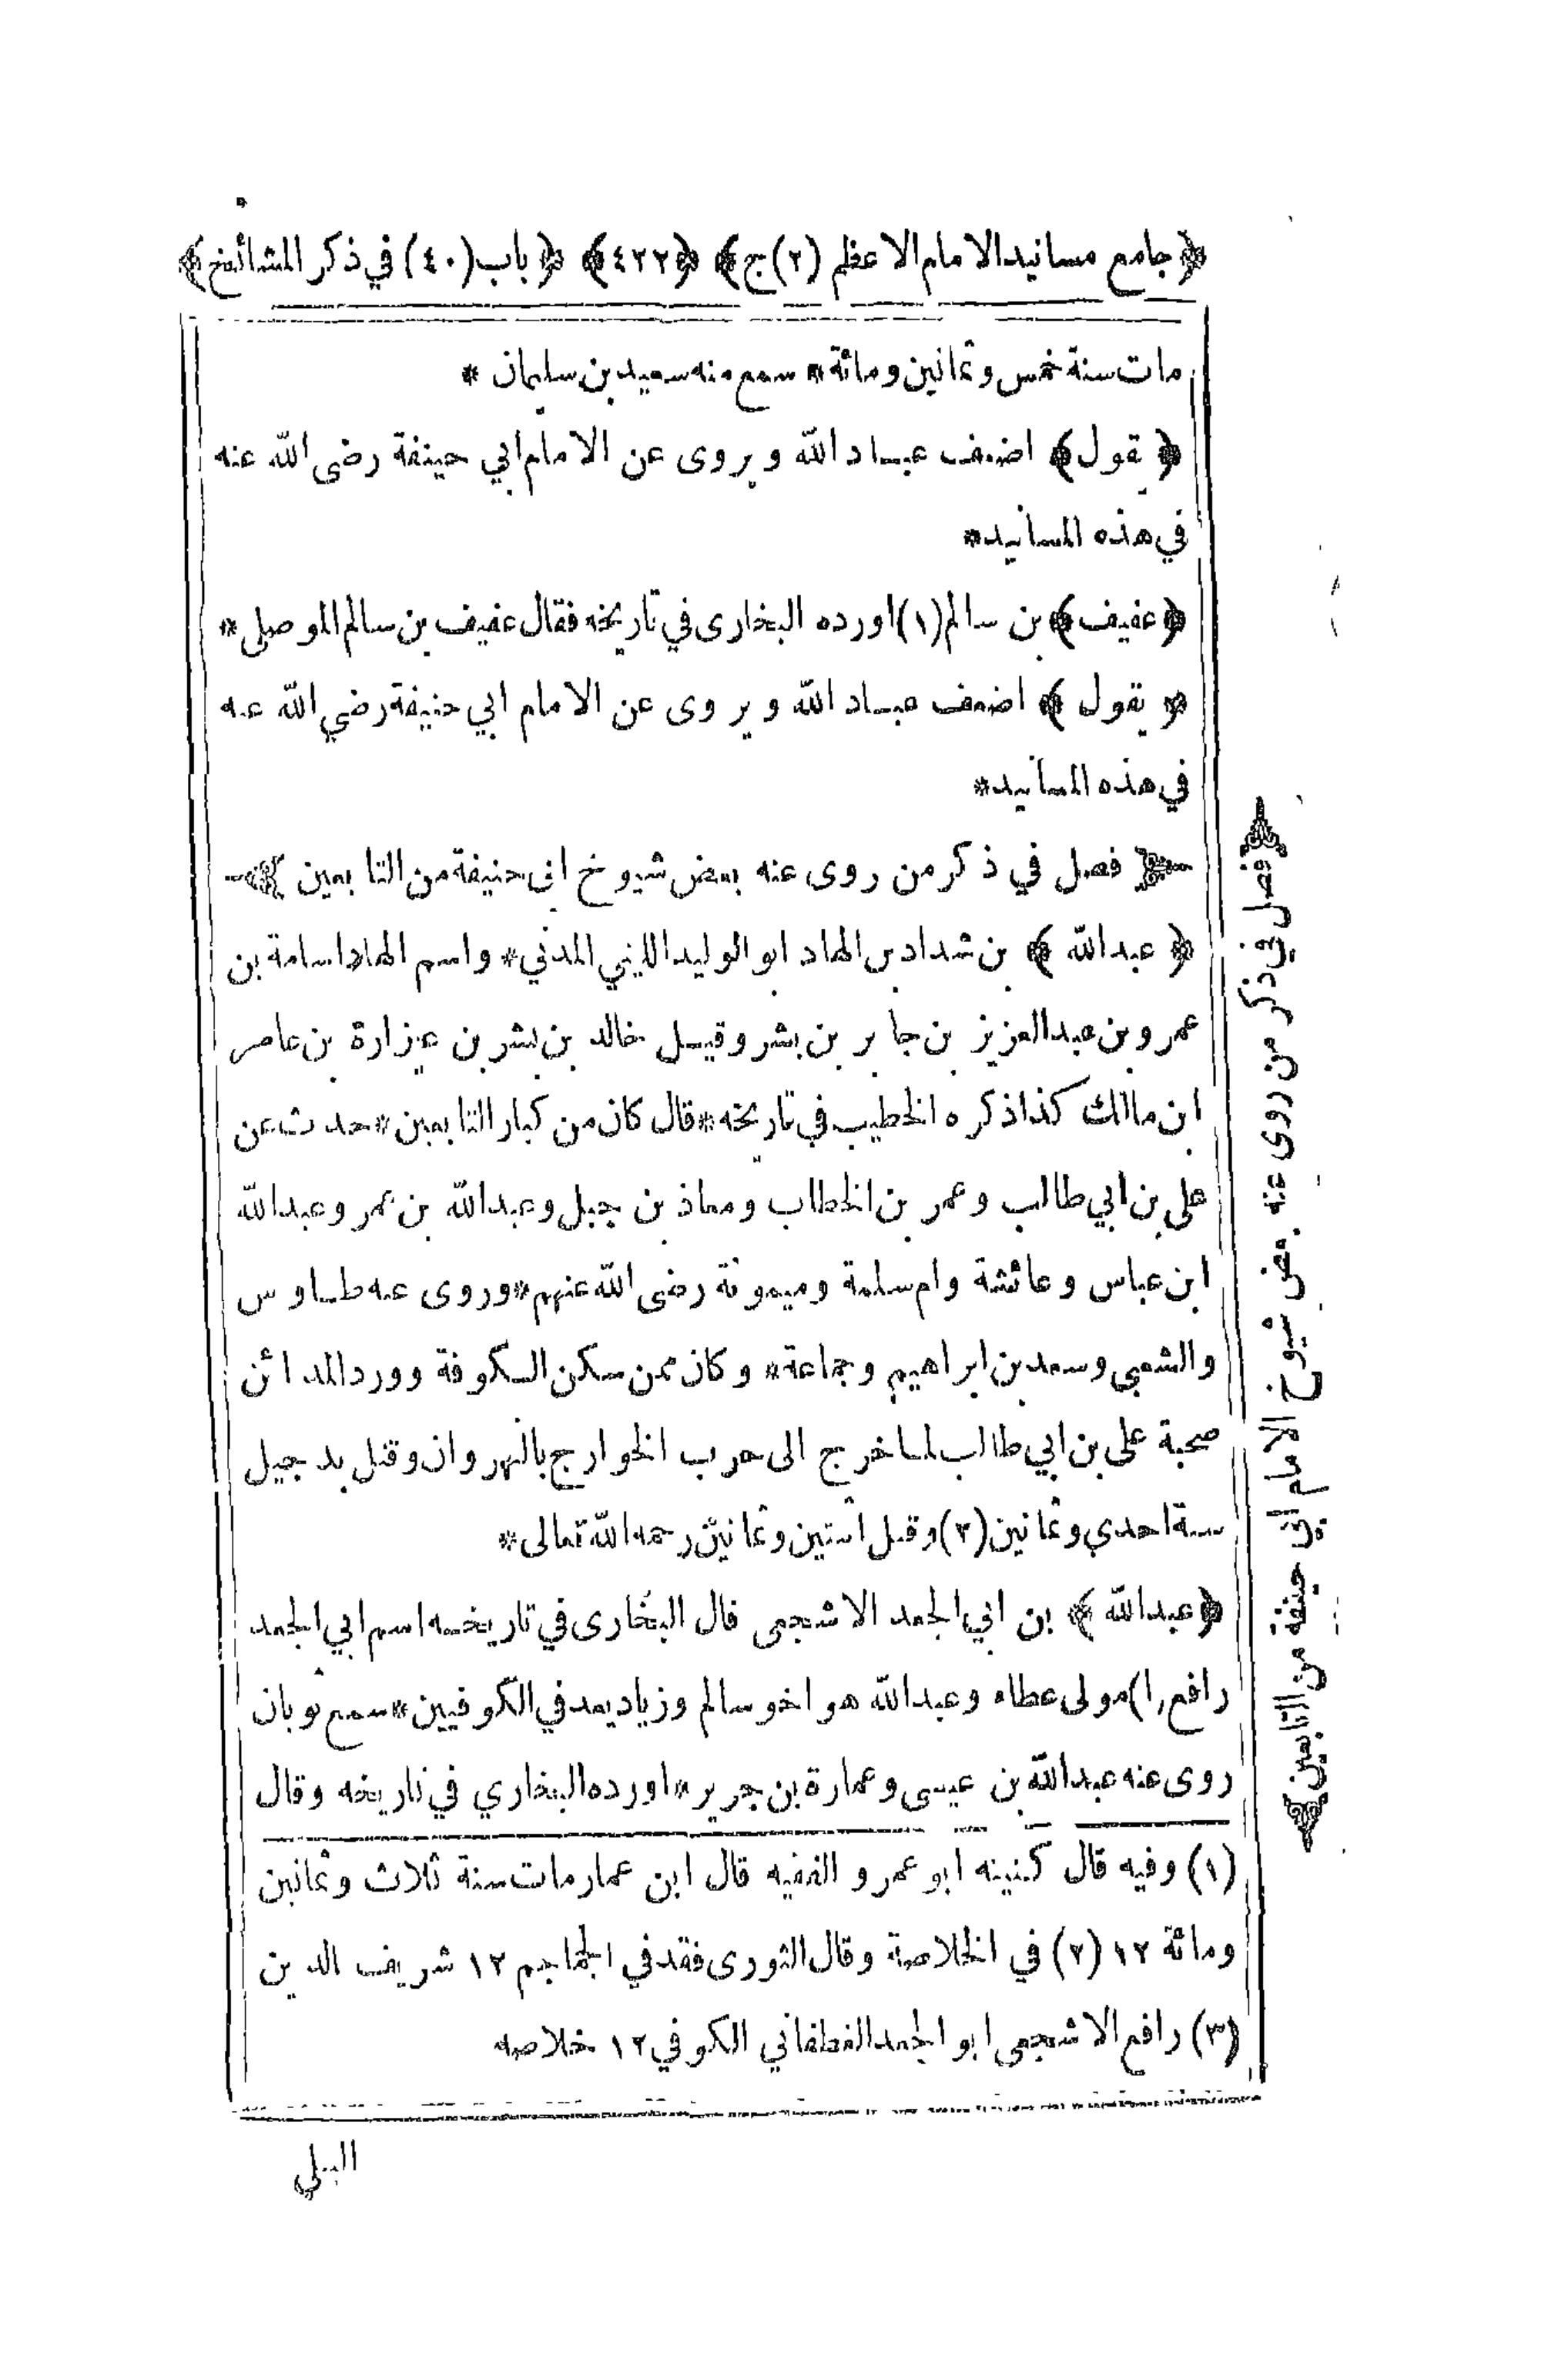 ﴿جامع مسانيد الامام الاعظم (٢) ج﴾ ﴿٤٢٢﴾ ﴿باب (٤٠) في ذكر المشائخ﴾
مات سنة خمس وثمانين ومائة * سمع منه سعيد بن سليمان *
﴿يقول﴾ اضعف عباد الله ويروى عن الامام ابي حنيفة رضى الله عنه
في هذه المسانيد *
﴿عفيف﴾ بن سالم (١) اورده البخارى في تاريخه فقال عفيف بن سالم الموصلى *
﴿يقول﴾ اضعف عباد الله ويروى عن الامام ابي حنيفة رضي الله عنه
في هذه المسانيد *
فصل في ذكر من روى عنه بعض شيوخ ابى حنيفة من التابعين
﴿عبدالله﴾ بن شداد بن الهاد ابو الوليد الليثي المدني * واسم الهاد اسامة بن
عمرو بن عبد العزيز بن جابر بن بشر وقيل خالد بن بشر بن عيزارة بن عامر
ابن مالك كذا ذكره الخطيب في تاريخه * قال كان من كبار التابعين * حدث عن
على بن ابي طالب وعمر بن الخطاب ومعاذ بن جبل وعبدالله بن عمر وعبدالله
ابن عباس وعائشة وام سلمة وميمونة رضى الله عنهم * وروى عنه طاوس
والشعبي وسعد بن ابراهيم وجماعة * وكان ممن سكن الكوفة وورد المدائن
صحبة على بن ابي طالب لما خرج الى حرب الخوارج بالنهروان وقتل بدجيل
سنة احدي وثمانين (٢) وقيل اثنتين وثمانين رحمه الله تعالى *
﴿عبدالله﴾ بن ابي الجعد الاشجعى قال البخارى في تاريخه اسم ابي الجعد
رافع (١) مولى عطاء وعبدالله هو اخو سالم وزياد يعد في الكوفيين * سمع ثوبان
روى عنه عبدالله بن عيسى وعمارة بن جرير * اورده البخاري في تاريخه وقال
(١) وفيه قال كنيته ابو عمرو الفقيه قال ابن عمار مات سنة ثلاث وثمانين
ومائة ١٢ (٢) في الخلاصة وقال الثورى فقد في الجماجم ١٢ شريف الدين
(٣) رافع الاشجعى ابو الجعد الغطفاني الكوفي ١٢ خلاصه
﴿فصل في ذكر من روى عنه بعض شيوخ الامام ابي حنيفة من التابعين﴾